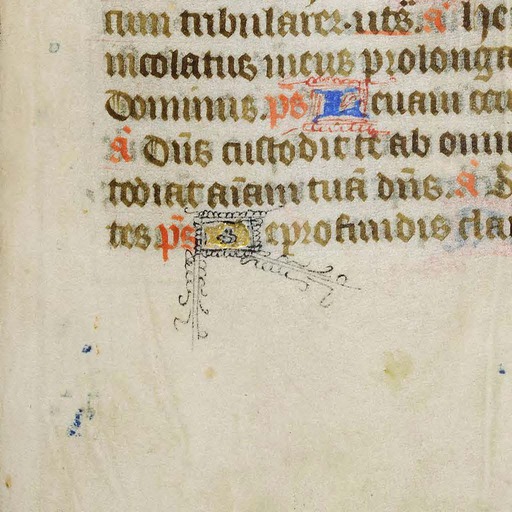 cum tribularer. uts̄. aᷓ he
incolatus meus prolonga
Dominus. ps̄ Leuam ocu
aᷓ Dn̄s custodit te ab omn
todiat aīam tuā dn̄s. aᷓ S
tes ps̄ De profundis cla